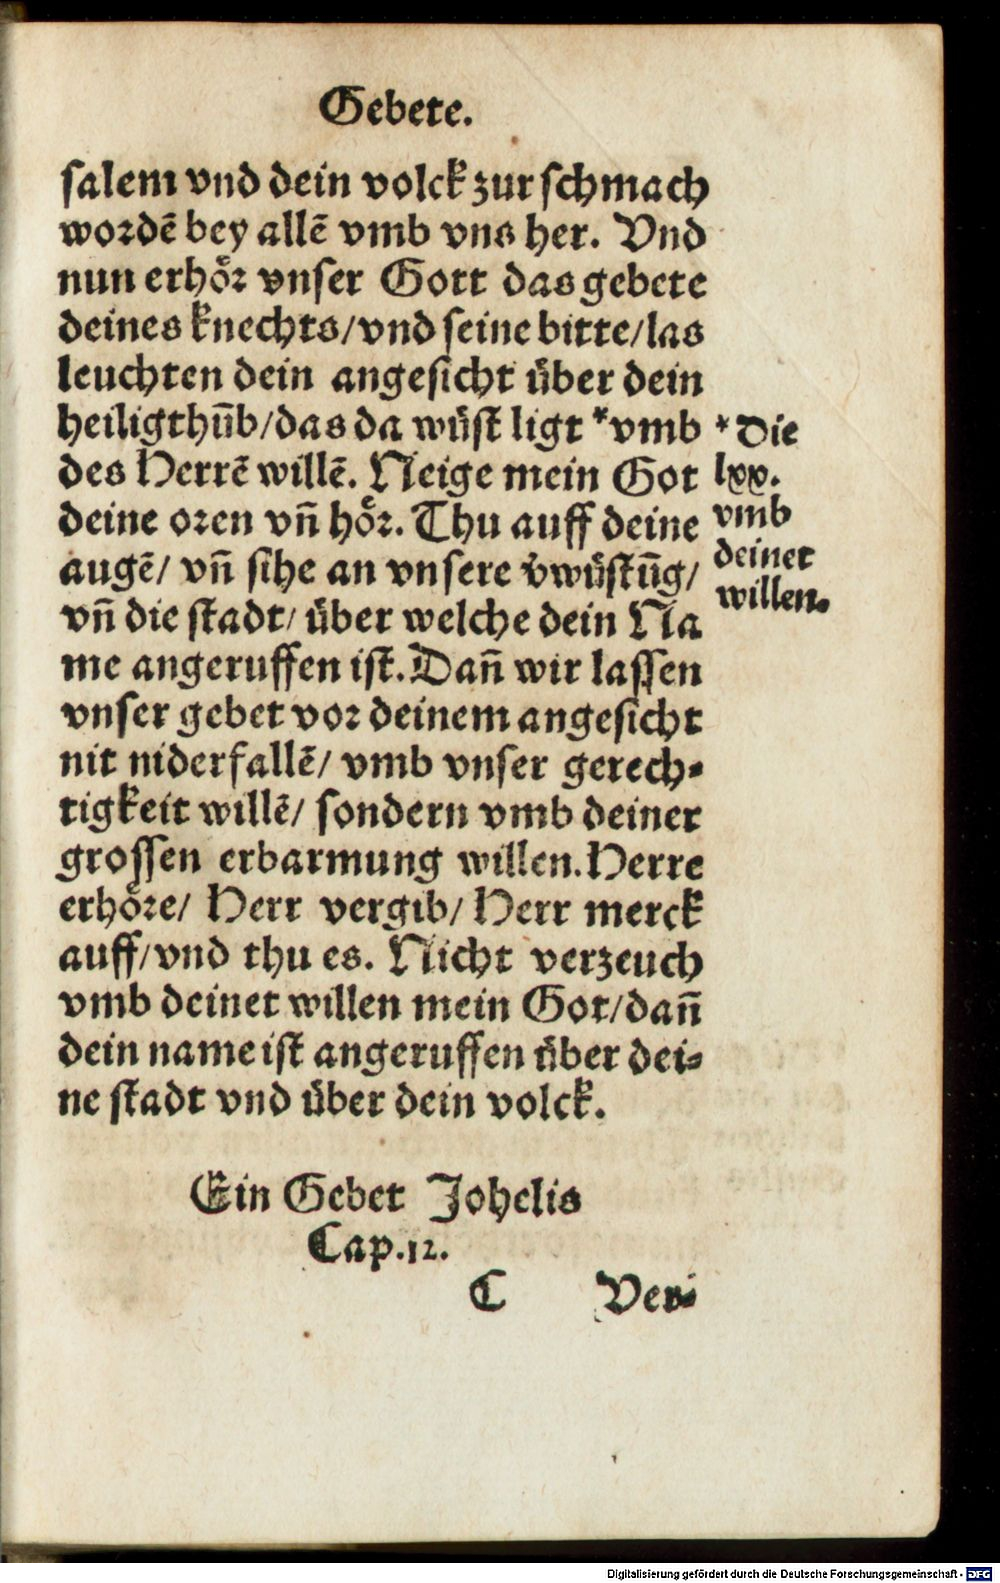 Gebete.
salem vnd dein volck zur schmach
wordē bey allē vmb vns her. Vnd
nun erhoͤr vnser Gott das gebete
deines knechts/vnd seine bitte/las
leuchten dein angesicht uͤber dein
heiligthūb/das da wuͤst ligt *vmb
des Herrē willē. Neige mein Got
deine oren vn̄ hoͤr. Thu auff deine
augē/ vn̄ sihe an vnsere v̓wuͤstūg/
vn̄ die stadt/ uͤber welche dein Na
me angeruffen ist. Dan̄ wir lassen
vnser gebet vor deinem angesicht
nit niderfallē/ vmb vnser gerech-
tigkeit willē/ sondern vmb deiner
grossen erbarmung willen. Herre
erhoͤre/ Herr vergib/ Herr merck
auff/vnd thu es. Nicht verzeuch
vmb deinet willen mein Got/dan̄
dein name ist angeruffen uͤber dei-
ne stadt vnd uͤber dein volck.
* Die
lxx.
vmb
deinet
willen.
Ein Gebet Johelis
Cap.12.
C Ver-
Digitalisierung gefördert durch die Deutsche Forschungsgemeinschaft - DFG